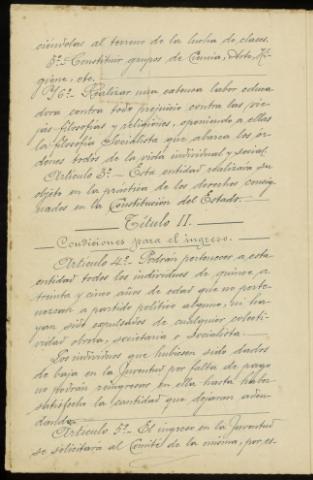 ciéndolas al terreno de la lucha de clases.
5º- Constituir grupos de Ciencia, Arte, Hi-
giene, etc.
Y 6º- Realizar una extensa labor educa-
dora contra todo prejuicio contra las vie-
jas filosofías y religiones, oponiendo a ellas
la filosofía Socialista que abarca los ór-
denes todos de la vida individual y social.
Artículo 3º- Esta entidad realizará su
objeto en la práctica de los derechos consig-
nados en la Constitución del Estado.
Título II.
Condiciones para el ingreso.
Artículo 4º- Podrán pertenecer a esta
entidad todos los individuos de quince, a
treinta y cinco años de edad que no perte-
nezcan a partido político alguno, ni ha-
yan sido expulsados de cualquier colecti-
vidad obrera, societaria y Socialista.
Los individuos que hubiesen sido dados
de baja en la Juventud por falta de pago
no podrán reingresar en ella hasta haber
satisfecho la cantidad que dejaran adeu-
dando.
Artículo 5º- El ingreso en la Juventud
se solicitará al Comité de la misma, por es-